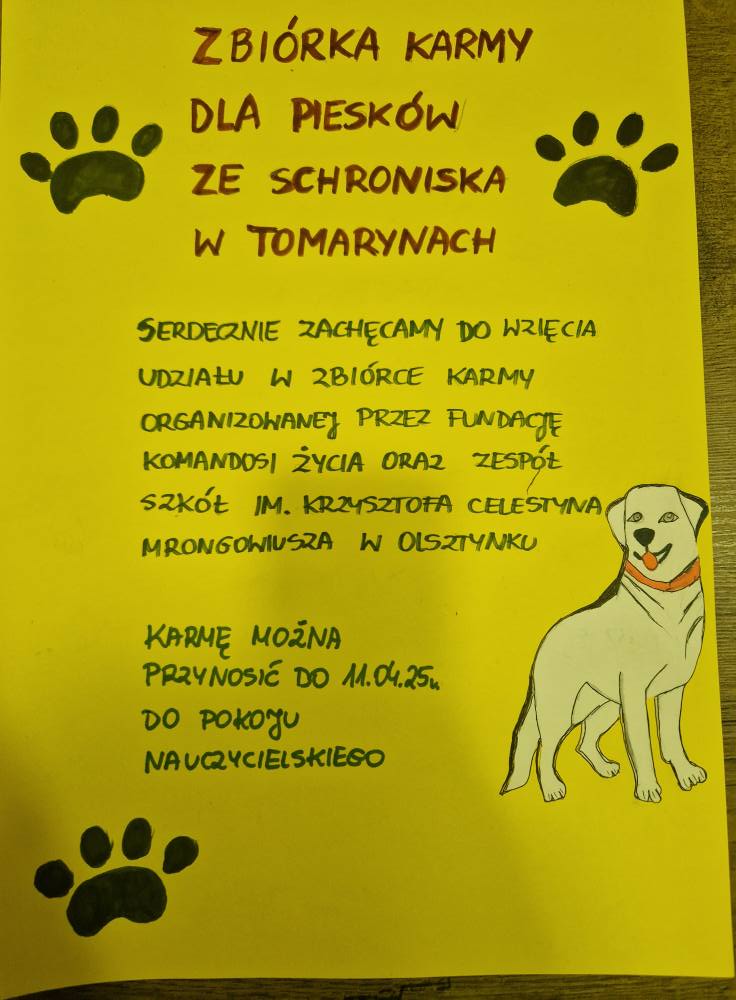 ZBIÓRKA KARMY
DLA PIESKÓW
ZE SCHRONISKA
W TOMARYNACH
SERDECZNIE ZACHĘCAMY DO WZIĘCIA
UDZIAŁU W ZBIÓRCE KARMY
ORGANIZOWANEJ PRZEZ FUNDACJĘ
KOMANDOSI ŻYCIA ORAZ ZESPÓŁ
SZKÓŁ IM. KRZYSZTOFA CELESTYNA
MRONGOWIUSZA W OLSZTYNKU
KARMĘ MOŻNA
PRZYNOSIĆ DO 11.04.25r.
DO POKOJU
NAUCZYCIELSKIEGO